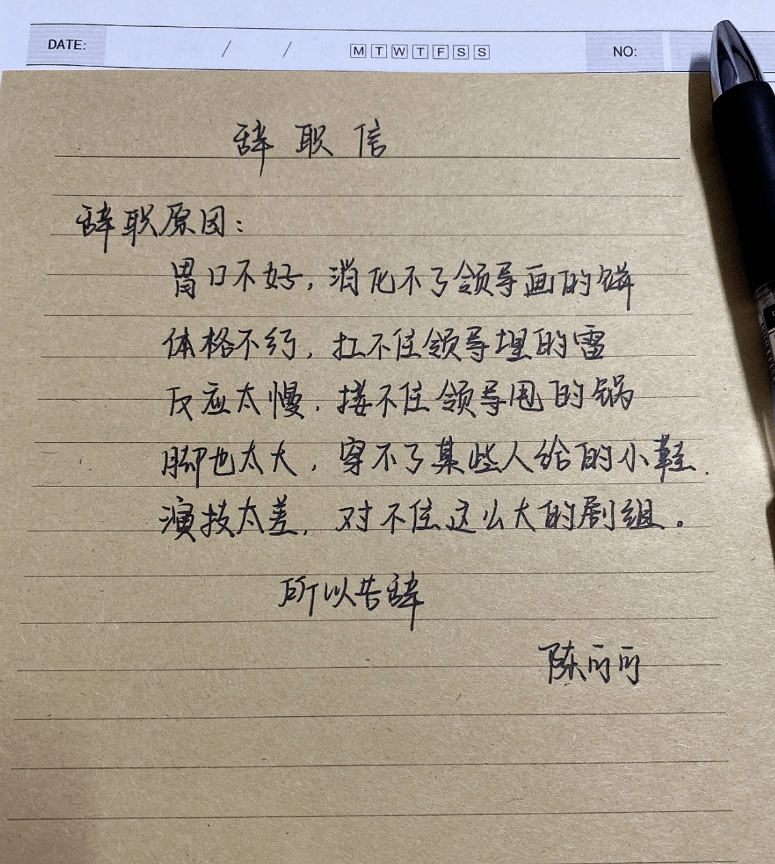 DATE: / / M T W T F S S NO:
辞职信
辞职原因：
胃口不好，消化不了领导画的饼
体格不行，扛不住领导埋的雷
反应太慢，接不住领导甩的锅
脚也太大，穿不了某些人给的小鞋.
演技太差，对不住这么大的剧组。
所以告辞
陈可可